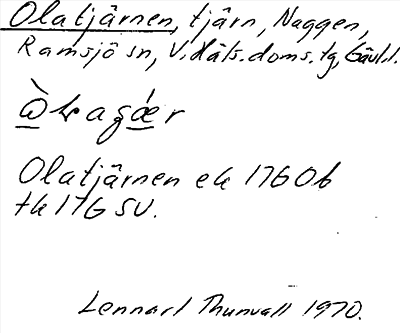 Olatjärnen, tjärn, Naggen,
Ramsjö sn, V. Häls. doms. tg, Gävl. l.
Olatjärnen ek 17G 0b
tk 17G SV.
Lennart Thunvall 1970.